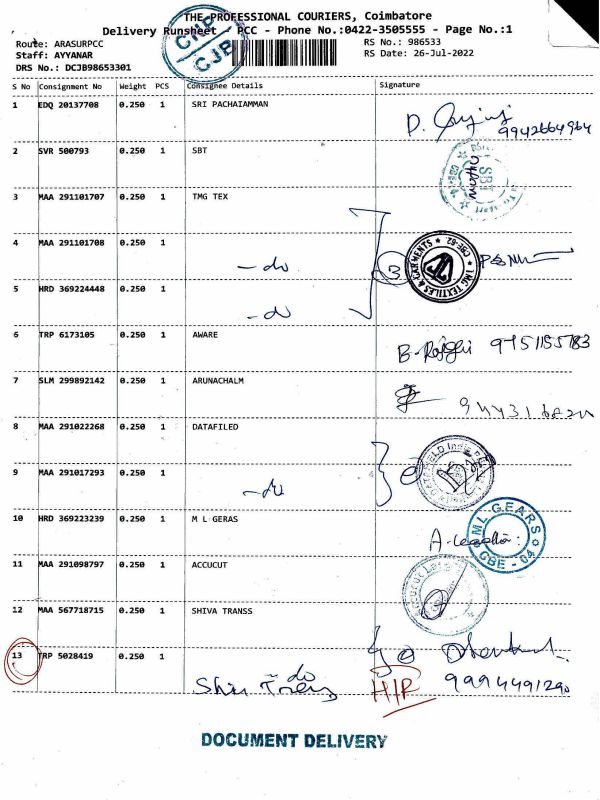 THE PROFESSIONAL COURIERS, Coimbatore
Delivery Runsheet / PCC - Phone No.:0422-3505555 - Page No.:1
CNP
CJB
Route: ARASURPCC RS No.: 986533
Staff: AYYANAR RS Date: 26-Jul-2022
DRS No.: DCJB98653301
S No Consignment No Weight PCS Consignee Details Signature
1 EDQ 20137708 0.250 1 SRI PACHAIAMMAN
9942664964
2 SVR 500793 0.250 1 SBT
SBT
3 MAA 291101707 0.250 1 TMG TEX
4 MAA 291101708 0.250 1
- do 3
TMG TEXTILES & GARMENTS CBE-62
5 HRD 369224448 0.250 1
- do
6 TRP 6173105 0.250 1 AWARE
7 SLM 299892142 0.250 1 ARUNACHALM
8 MAA 291022268 0.250 1 DATAFILED
9 MAA 291017293 0.250 1
- do
10 HRD 369223239 0.250 1 M L GERAS
M L GEARS
CBE - 04
11 MAA 291098797 0.250 1 ACCUCUT
12 MAA 567718715 0.250 1 SHIVA TRANSS
13 TRP 5028419 0.250 1
do
H/R 9994491290
DOCUMENT DELIVERY